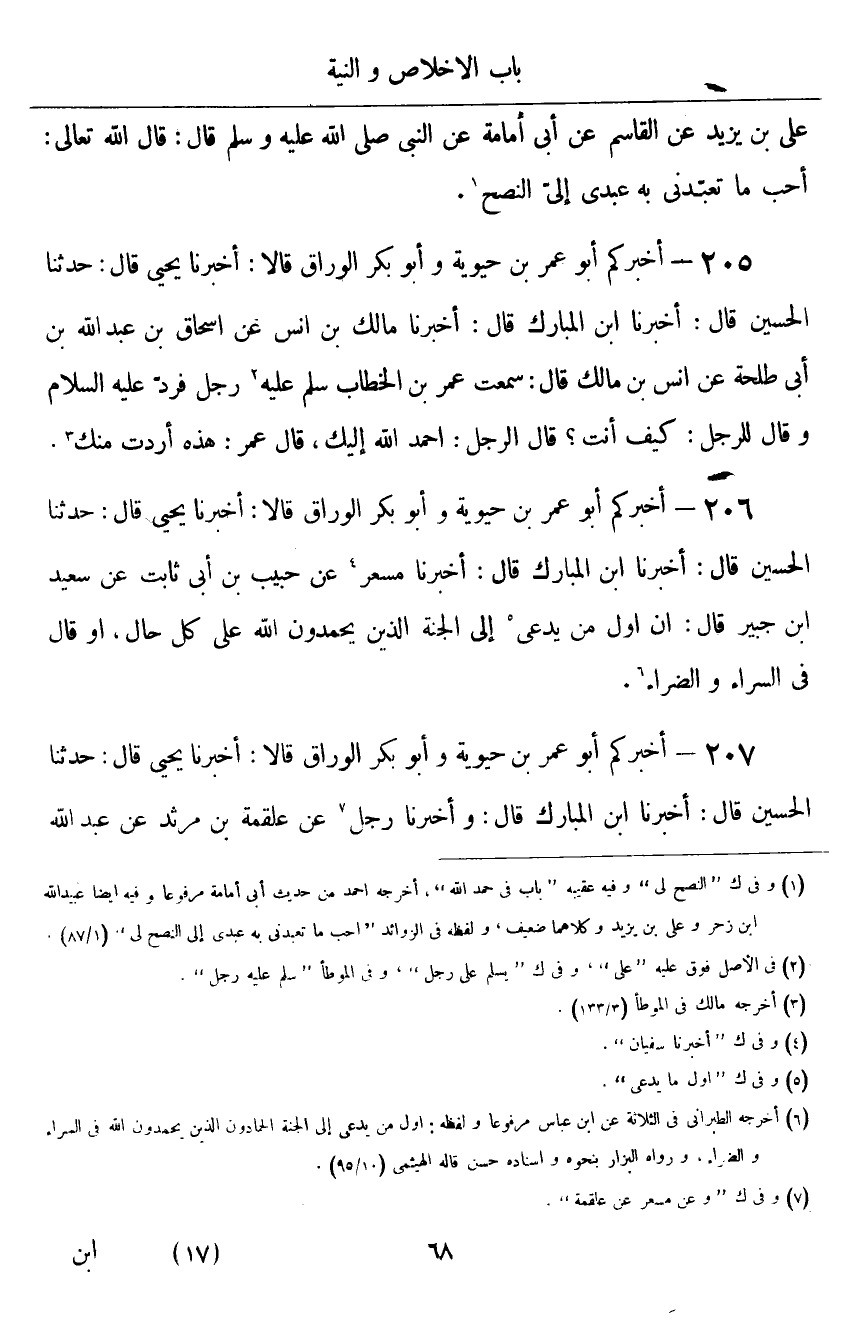 باب الاخلاص و النية
على بن يزيد عن القاسم عن أبى أمامة عن النبى صلى الله عليه و سلم قال: قال الله تعالى:
أحب ما تعبّدنى به عبدى إلىّ النصح١ .
٢٠٥ — أخبركم أبو عمر بن حيوية و أبو بكر الوراق قالا: أخبرنا يحيى قال: حدثنا
الحسين قال: أخبرنا ابن المبارك قال: أخبرنا مالك بن انس عن اسحاق بن عبد الله بن
أبى طلحة عن انس بن مالك قال: سمعت عمر بن الخطاب سلم عليه٢ رجل فردّ عليه السلام
و قال للرجل: كيف أنت؟ قال الرجل: احمد الله إليك، قال عمر: هذه أردت منك٣ .
٢٠٦ — أخبركم أبو عمر بن حيوية و أبو بكر الوراق قالا: أخبرنا يحيى قال: حدثنا
الحسين قال: أخبرنا ابن المبارك قال: أخبرنا مسعر٤ عن حبيب بن أبى ثابت عن سعيد
ابن جبير قال: ان اول من يدعى٥ إلى الجنة الذين يحمدون الله على كل حال، او قال
فى السراء و الضراء٦ .
٢٠٧ — أخبركم أبو عمر بن حيوية و أبو بكر الوراق قالا: أخبرنا يحيى قال: حدثنا
الحسين قال: أخبرنا ابن المبارك قال: و أخبرنا رجل٧ عن علقمة بن مرثد عن عبد الله
(١) و فى ك "النصح لى" و فيه عقيبه "باب فى حمد الله"، أخرجه احمد من حديث أبى أمامة مرفوعا و فيه ايضا عبيدالله
ابن زحر و على بن يزيد و كلاهما ضعيف، و لفظه فى الزوائد "احب ما تعبدنى به عبدى إلى النصح لى" (٨٧/١) .
(٢) فى الأصل فوق عليه "على"، و فى ك "يسلم على رجل"، و فى الموطأ "سلم عليه رجل" .
(٣) أخرجه مالك فى الموطأ (١٣٣/٣) .
(٤) و فى ك "أخبرنا سفيان" .
(٥) و فى ك "اول ما يدعى" .
(٦) أخرجه الطبرانى فى الثلاثة عن ابن عباس مرفوعا و لفظه: اول من يدعى إلى الجنة الحمادون الذين يحمدون الله فى السراء
و الضراء، و رواه البزار بنحوه و اسناده حسن قاله الهيثمى (٩٥/١٠) .
(٧) و فى ك "و عن مسعر عن علقمة" .
٦٨ (١٧) ابن